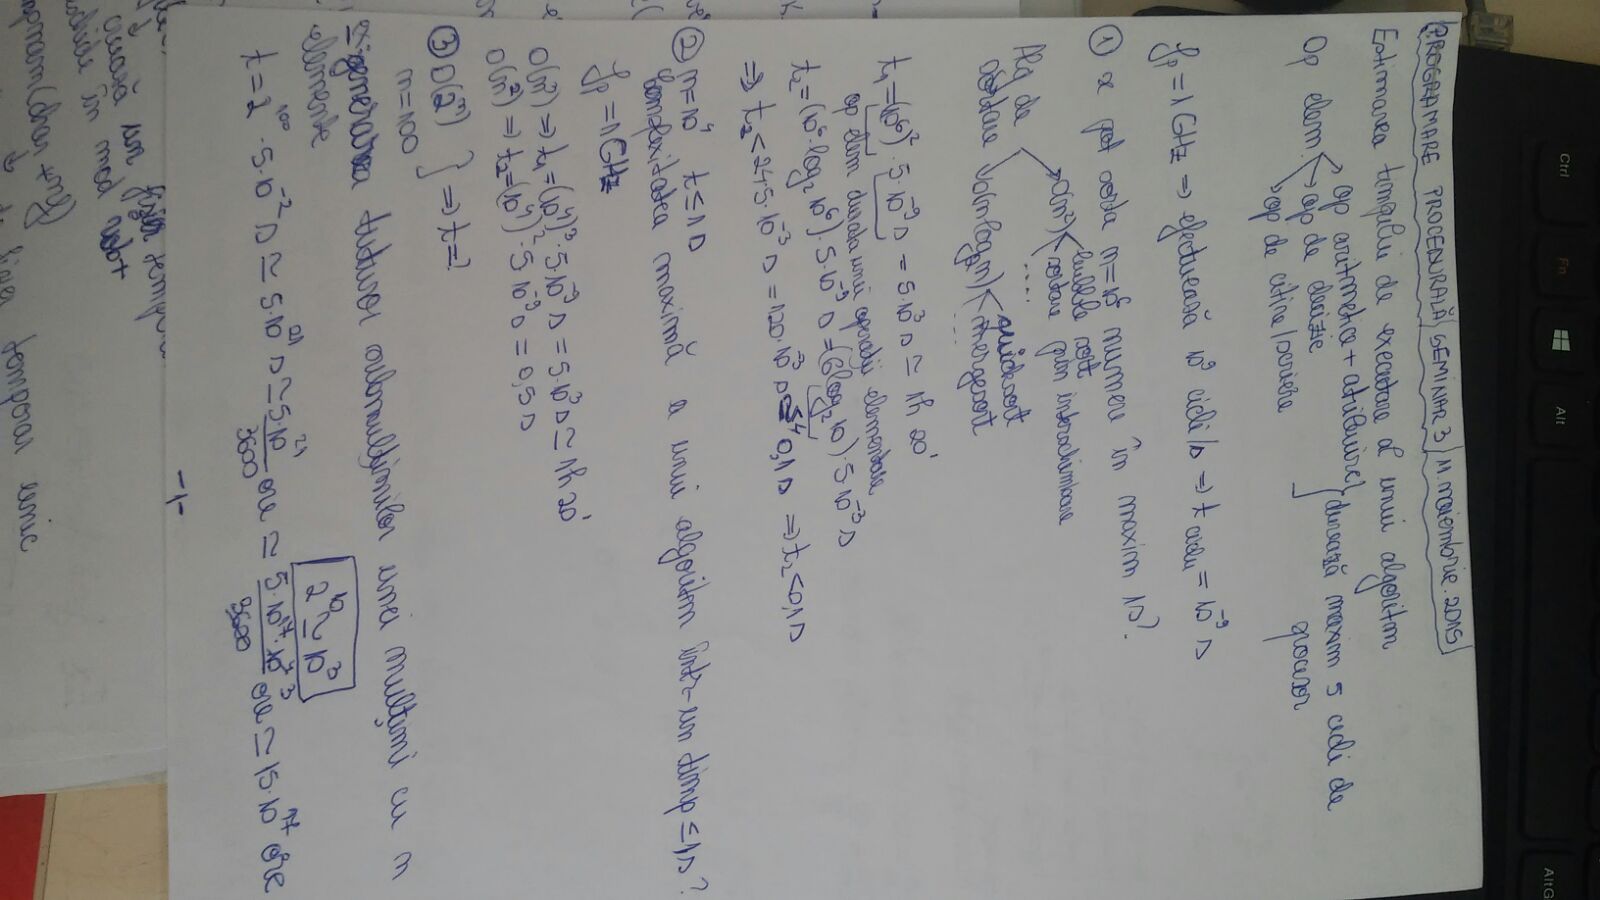 Ctrl
Fn
Alt
AltG
PROGRAMARE PROCEDURALĂ | SEMINAR 3 | 11.noiembrie.2015
Estimarea timpului de executare al unui algoritm
Op elem.
op aritmetice + atribuire
op de decizie
op de citire/scriere
durează maxim 5 cicli de
procesor
fp = 1GHz => efectuează 10^9 cicli/s => t ciclu = 10^-9 s
① se pot sorta n=10^6 numere în maxim 1s?
Alg de
sortare
O(n²)
bubble sort
sortare prin interschimbare
....
O(nlog₂n)
quicksort
mergesort
...
t₁=(10^6)²·5·10^-9 s = 5·10³ s ≃ 1h 20'
op elem durata unei operații elementare
t₂=(10^6·log₂10^6)·5·10^-9 s =(6log₂10)·5·10^-3 s
=> t₂<24·5·10^-3 s = 120·10^-3 s 0,1 s => t₂<0,1s
② n=10^4 t≤1s
Complexitatea maximă a unui algoritm într-un timp ≤1s?
fp =1GHz
O(n³) => t₁=(10^4)³·5·10^-9 s = 5·10³ s ≃ 1h20'
O(n²) => t₂=(10^4)²·5·10^-9 s = 0,5 s
③ O(2^n)
n=100
} => t=?
generarea tuturor submulțimilor unei mulțimi cu n
elemente
2^10 ≃ 10^3
t = 2^100 · 5·10^-2 s ≃ 5·10^21 s ≃ 5·10^21/3600 ore ≃ 5·10^17·10^4/3600 ore ≃ 15·10^17 ore
-1-
un fișier
în mod
char
temporar unic